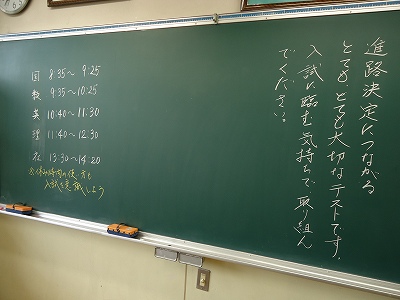 進路決定につながる
とてもとても大切なテストです。
入試に臨む気持ちで取り組ん
でください。
国 8:35～ 9:25
数 9:35～10:25
英 10:40～11:30
理 11:40～12:30
社 13:30～14:20
※休み時間の使い方も
入試を意識しよう